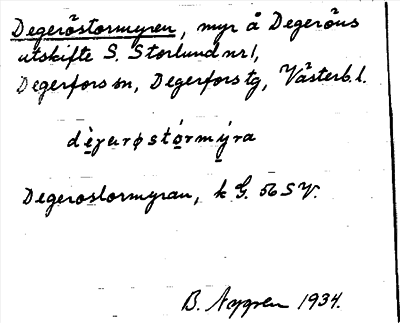 Degeröstormyren, myr å Degeröns
utskifte S. Storlund nr 1,
Degerfors sn, Degerfors tg, Västerb. l.
dègarøstórmýra
Degerostormyran, k G. 56 SV.
B. Nygren 1934.